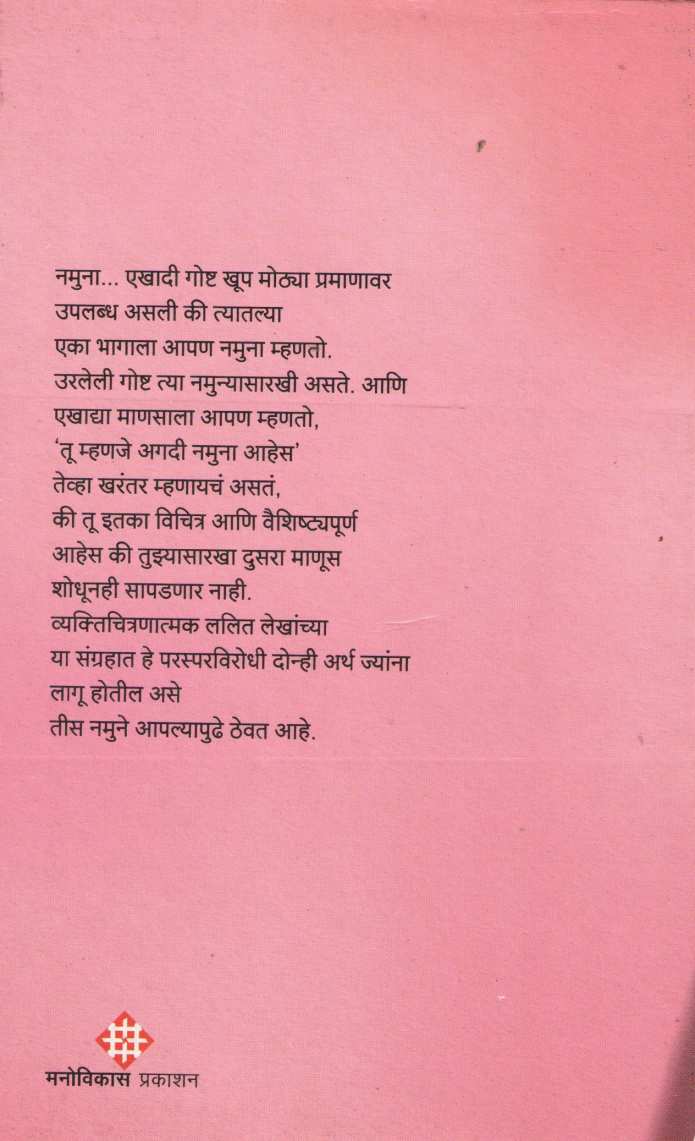 नमुना... एखादी गोष्ट खूप मोठ्या प्रमाणावर
उपलब्ध असली की त्यातल्या
एका भागाला आपण नमुना म्हणतो.
उरलेली गोष्ट त्या नमुन्यासारखी असते. आणि
एखाद्या माणसाला आपण म्हणतो,
‘तू म्हणजे अगदी नमुना आहेस’
तेव्हा खरंतर म्हणायचं असतं,
की तू इतका विचित्र आणि वैशिष्ट्यपूर्ण
आहेस की तुझ्यासारखा दुसरा माणूस
शोधूनही सापडणार नाही.
व्यक्तिचित्रणात्मक ललित लेखांच्या
या संग्रहात हे परस्परविरोधी दोन्ही अर्थ ज्यांना
लागू होतील असे
तीस नमुने आपल्यापुढे ठेवत आहे.
मनोविकास प्रकाशन